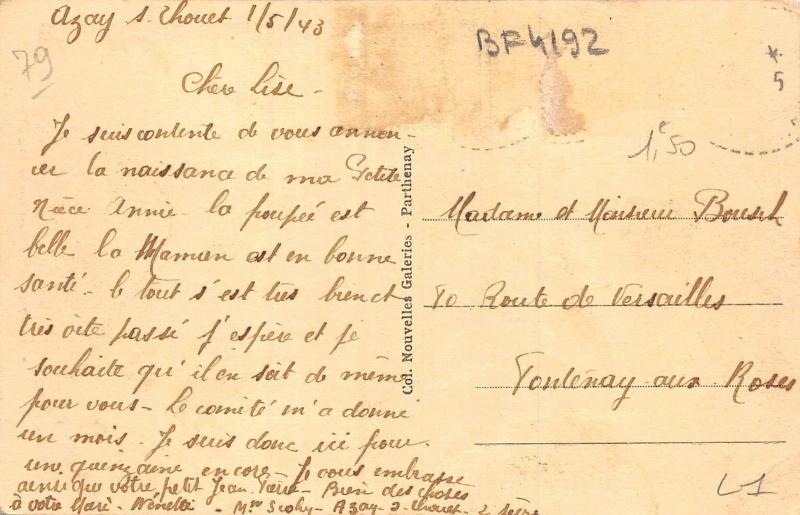 Azay s. Thouet 1/5/43
BF4192
79
* 5
1,50
Chère Lise -
Je suis contente de vous annon-
cer la naissance de ma Petite
Nièce Annie - la poupée est
belle la Maman est en bonne
santé - le tout s'est très bien et
très vite passé j'espère et je
souhaite qu'il en soit de même
pour vous - le comité m'a donné
un mois. Je suis donc ici pour
une quinzaine encore - Je vous embrasse
ainsi que votre petit Jean Pierre - Bien des choses
à votre Mari - Ninette - Mme - Azay-s-Thouet - 2 Sèvres
Col. Nouvelles Galeries - Parthenay
Madame et Monsieur
70 Route de Versailles
Fontenay-aux Roses
L1